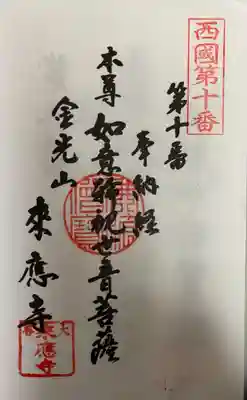 西國第十番
第十番
奉納経
本尊 如意輪観世音菩薩
金光山
來應寺
來應寺